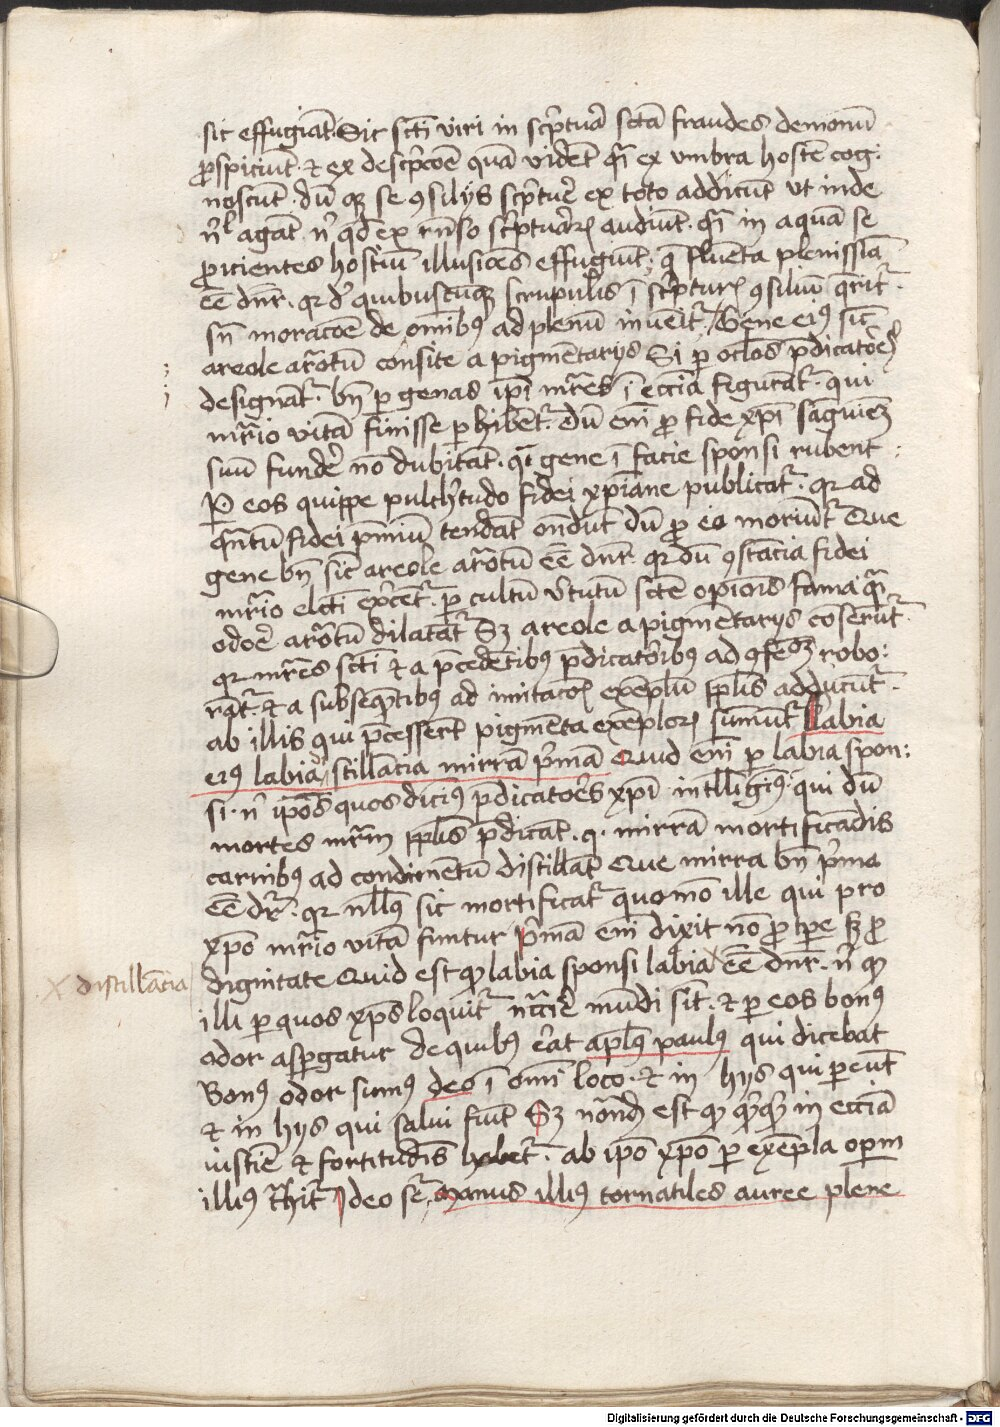 sic effugiāt. Sic scti viri in scptura scta fraudes demonū
pspiciūt. et ex descpcōe quā vidēt qi ex vmbra hostē cog:
noscūt. dū qz se 9silijs scpture ex toto addicūt vt inde
nl agāt. n qd ex rnso scpturaꝝ audiūt. qi in aquā se
proicientes hostiū illusiōes effugiūt. q fluēta plenissia
ee dnr. qr d quibuscūqz scrupulis ī scpturꝝ 9siliū qrit.
sn moracōe de omibꝯ ad plenū inuēit. Gene eiꝯ sic
areole arotū consite a pigmētarijs Si p oclos pdicatoꝝ
designat. bn p genas ipi mres ī eccia figurāt. qui
mrio vitā finisse phibēt. dū eni p fide xpi sāguiēꝫ
suū fundē nō dubitāt. qi gene ī facie sponsi rubent
P eos quippe pulchtudo fidei xpiane publicat. qr ad
qntū fidei pmiū tendat ondūt dū p ea moriūt Que
gene bn sic areole arotū ee dnr. qr dū 9stācia fidei
mrio elcti excent. p cultū vtutū scte opiōis fama qi
odore arotū dilatāt Sꝫ areole a pigmētarijs cōserūt.
qr mres scti et a pcedētibꝯ pdicatoribꝯ ad 9feōꝫ robo:
rāt. et a subseqtibꝯ ad imitacōꝫ exēplū ppłis adducūt.
ab illis qui pcessert pigmēta exēploꝝ sumūt Labia
eiꝯ labia stillācia mirrā pmā Quid eni p labia spon:
si. n ipos quos diciꝯ pdicatores xpi intlligiꝯ. qui dū
mortes mrm ppłis pdicāt. q. mirrā mortificādis
carnibꝯ ad condimētū distillāt Que mirra bn pma
ee dr. qr nllꝯ sic mortificat quomō ille qui pro
xpo mrio vitā finitur pmā eni dixit nō p tpe sꝫ p
dignitate Quid est qꝫ labia sponsi labia ee dnr. n qꝫ
distillācia
illi p quos xps loquit mūdi sūt. et p eos bonꝯ
odor aspgatur de quibꝯ erat aplꝯ paulꝯ qui dicebat
Bonꝯ odor sumꝯ deo ī omi loco. et in hijs qui peūt
et in hijs qui salui fiūt Sꝫ notād est qꝫ in ecciā
iustie et fortitudīs habet. ab ipo xpo p exēpla opm
illiꝯ thit Ideo sr. manus illiꝯ tornatiles auree plene